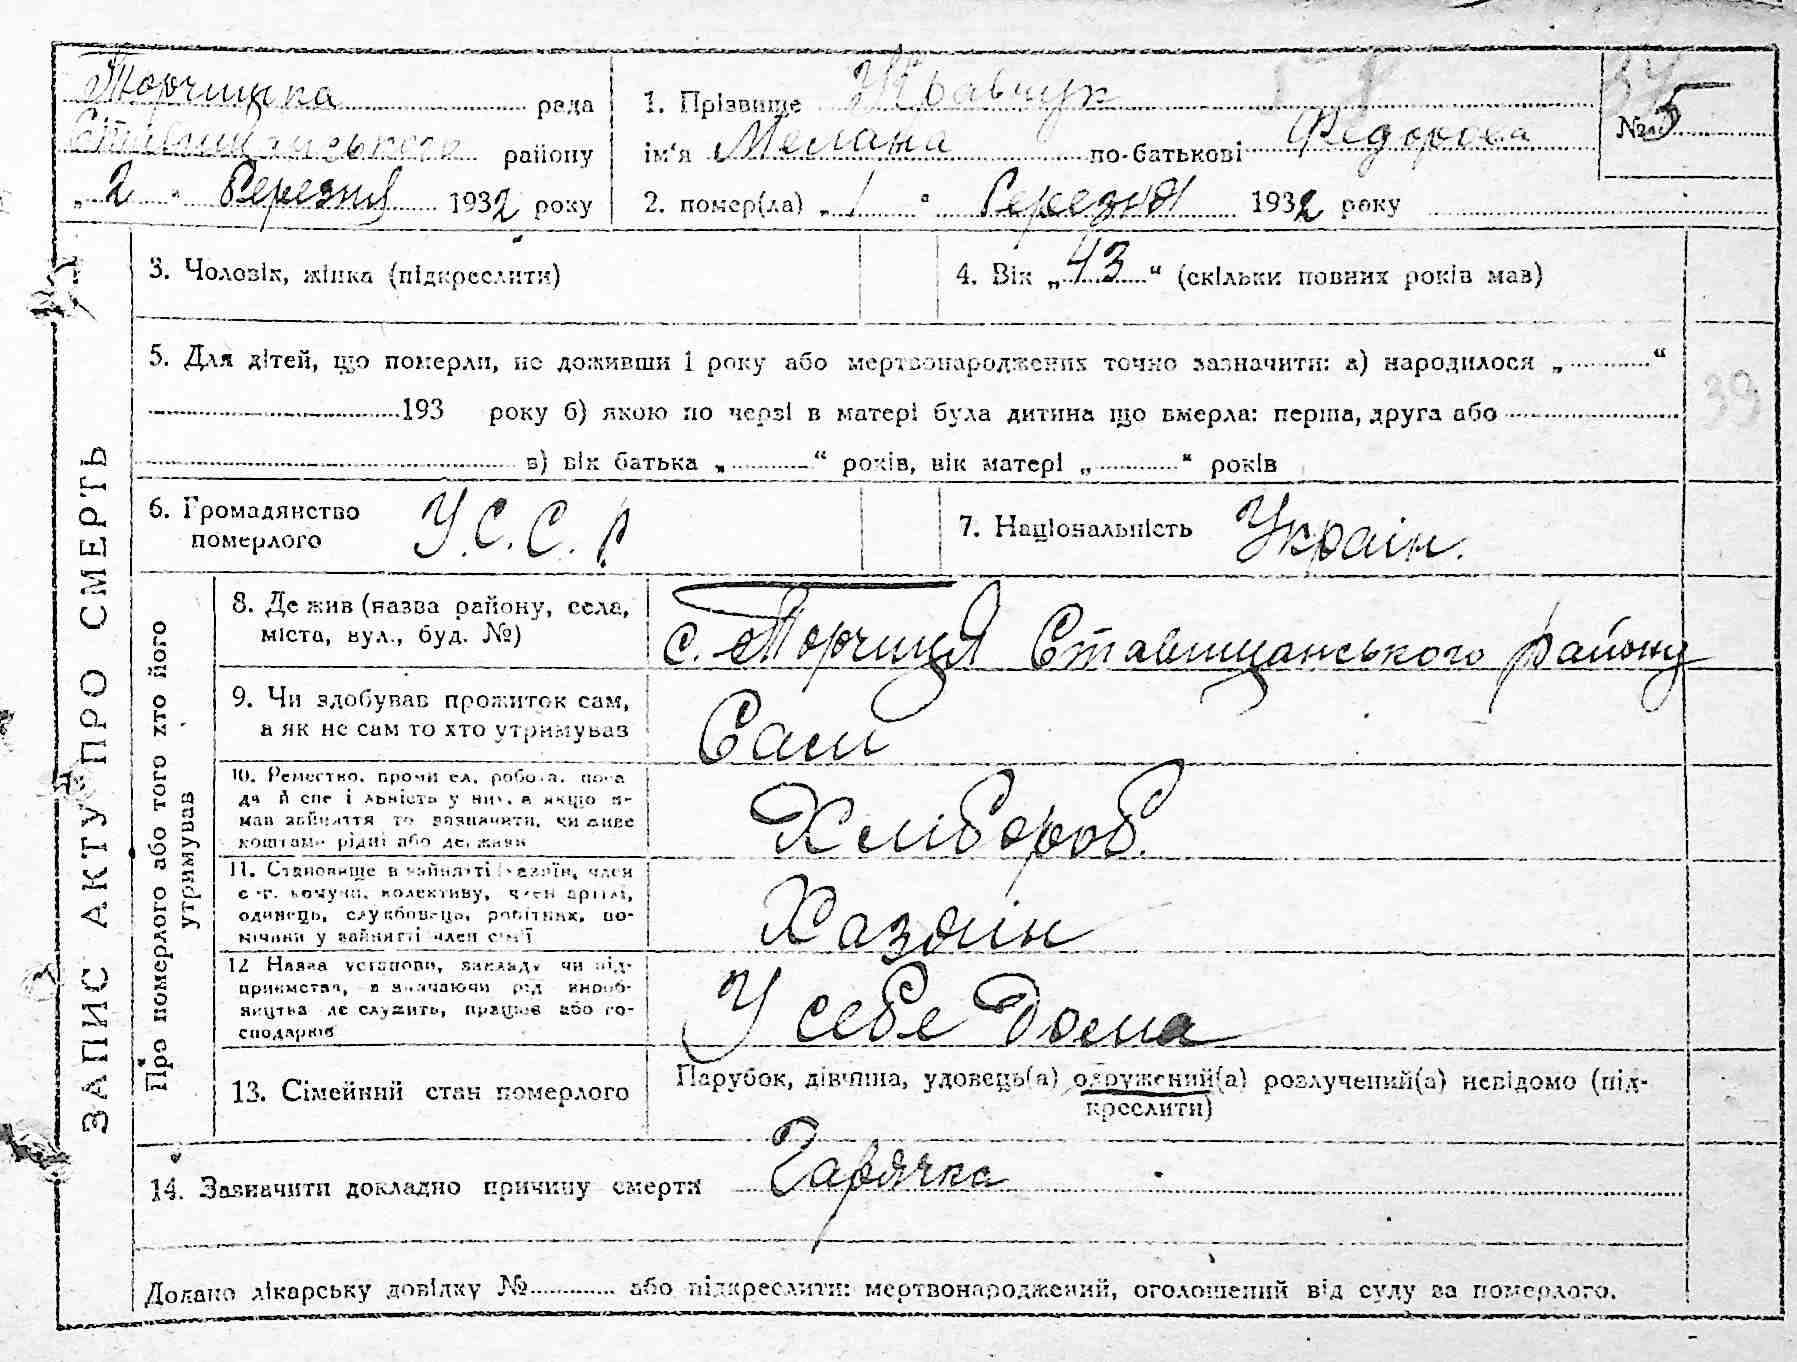 Торчицька рада
Ставищанського району
„ 2 " Березня 1932 року
1. Прізвище Кравчук
ім'я Мелана по-батькові Федорова
№ 5
2. помер(ла) „ 1 " Березня 1932 року
ЗАПИС АКТУ ПРО СМЕРТЬ
3. Чоловік, жінка (підкреслити)
4. Вік „ 43 " (скільки повних років мав)
5. Для дітей, що померли, не доживши 1 року або мертвонароджених точно зазначити: а) народилося „ "
193 року б) якою по черзі в матері була дитина що вмерла: перша, друга або
39
в) вік батька „ " років, вік матері „ " років
6. Громадянство
померлого
У.С.С.Р
7. Національність Україн.
Про померлого або того хто його
утримував
8. Де жив (назва району, села,
міста, вул., буд. №)
с. Торчиця Ставищанського району
9. Чи здобував прожиток сам,
а як не сам то хто утримував
Сам
10. Ремество, промисел, робота, поса
да й спеціяльність у них, а якщо не
мав зайняття то зазначити, чи живе
коштами рідні або держави
Хлібороб.
11. Становище в зайнятті: хазяїн, член
с-г. комуни, колективу, член артілі,
одинець, службовець, робітник, по-
мічний у зайнятті член сім'ї
Хазяїн
12 Назва установи, закладу чи під-
приємства, зазначаючи рід вироб-
ництва де служить, працює або го-
сподарків
У себе дома
13. Сімейний стан померлого
Парубок, дівчина, удовець(а) одружений(а) розлучений(а) невідомо (під-
креслити)
14. Зазначити докладно причину смерти Гарячка
Додано лікарську довідку № або підкреслити: мертвонароджений, оголошений від суду за померлого.